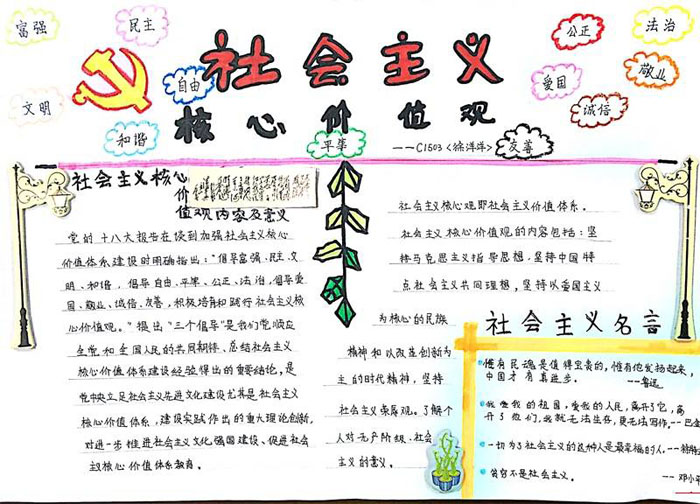 富强
民主
公正
法治
社会主义
自由
爱国
敬业
文明
诚信
核心价值观
和谐
平等
——C1503《徐洋洋》
友善
社会主义核心
价
值观内容及意义
党的十八大报告在谈到加强社会主义核心
价值体系建设时明确指出:“倡导富强、民主、文
明、和谐,倡导自由、平等、公正、法治,倡导爱
国、敬业、诚信、友善,积极培育和践行社会主义核
心价值观。”提出“三个倡导”是我们党顺应
全党和全国人民的共同期待、总结社会主义
核心价值体系建设经验得出的重要结论,是
党中央立足社会主义先进文化建设尤其是社会主义
核心价值体系,建设实践作出的重大理论创新,
对进一步推进社会主义文化强国建设、促进社会
主义核心价值体系教育。
社会主义核心观即社会主义价值体系。
社会主义核心价值观的内容包括:坚
持马克思主义指导思想,坚持中国特
点社会主义共同理想,坚持以爱国主义
为核心的民族
精神和以改革创新为
主的时代精神,坚持
社会主义荣辱观。了解个
人对无产阶级、社会
主义的意义。
社会主义名言
惟有民魂是值得宝贵的,惟有他发扬起来,
中国才有真进步。 --鲁迅
我爱我的祖国,爱我的人民,离开了它,离
开了他们,我就无法生存,更无法写作。--巴金
一切为了社会主义的这种人是最幸福的人。--
贫穷不是社会主义。 --邓小